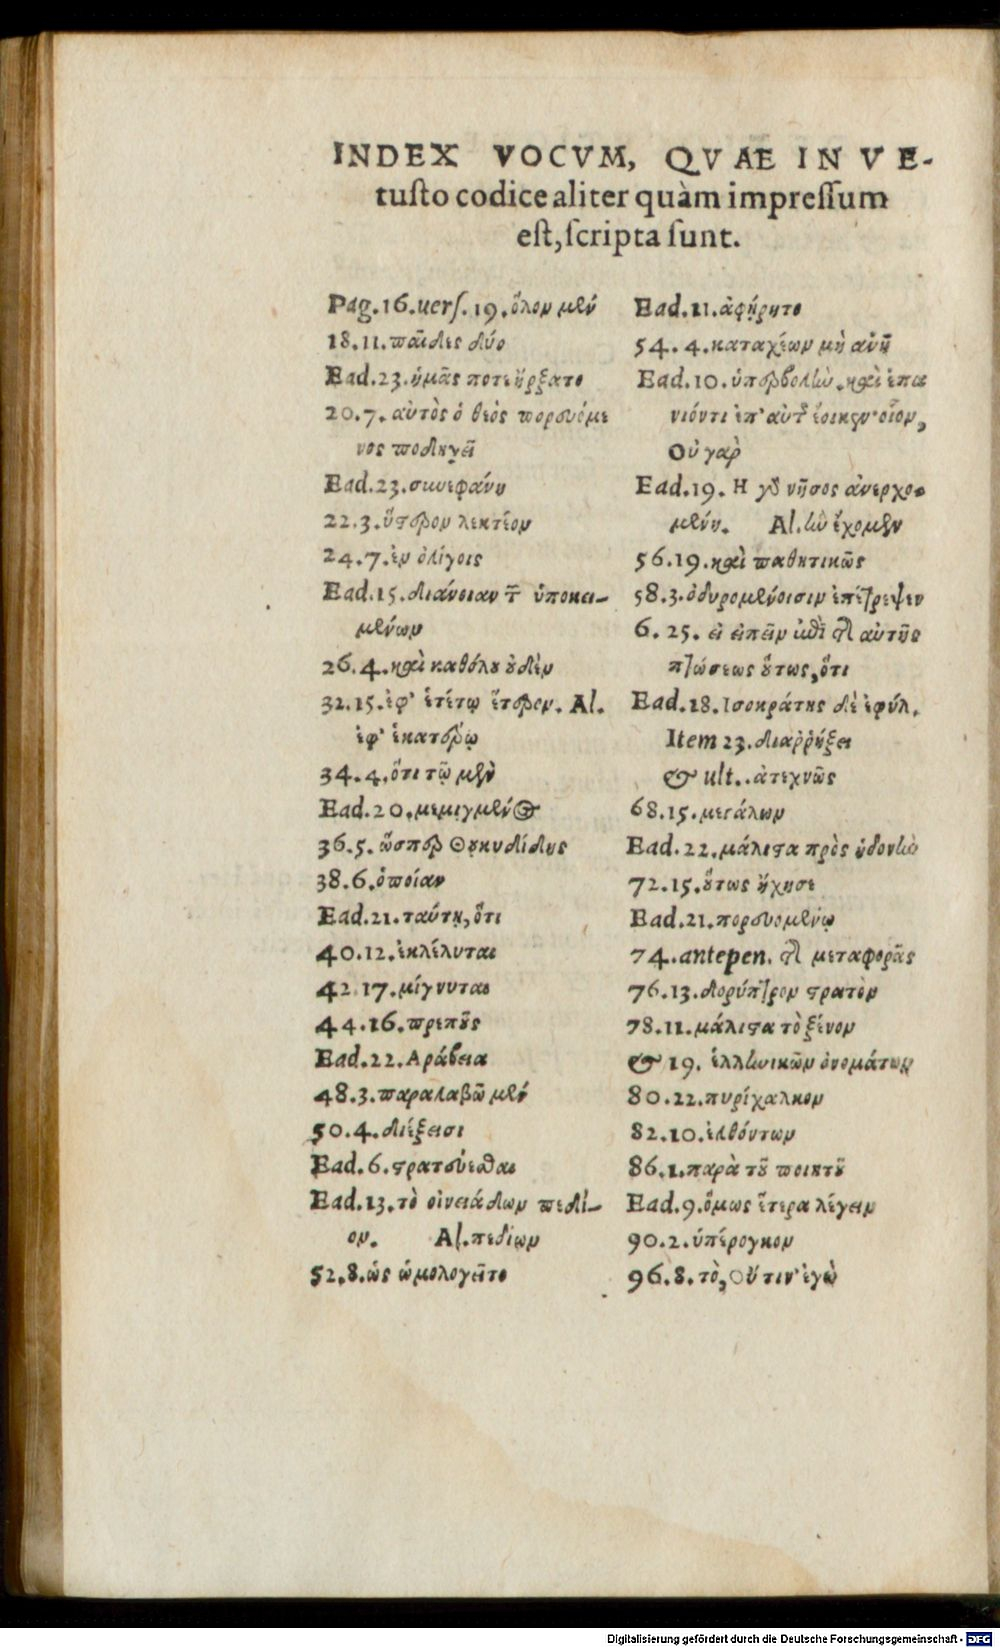 INDEX VOCVM, QVAE IN VE-
tusto codice aliter quàm impressum
est, scripta sunt.
Pag. 16. uers. 19. ὅλον μὲν
18. 11. παῖδες δύο
Ead. 23. ἡμᾶς ποτε ἤρξατο
20. 7. αὐτὸς ὁ θεὸς πορευόμε
νος ποδηγεῖ
Ead. 23. συνεφάνη
22. 3. ὕστερον λεκτέον
24. 7. ἐν ὀλίγοις
Ead. 15. διάνοιαν τῶν ὑποκει-
μένων
26. 4. καὶ καθόλου οὐδὲν
32. 15. ἐφ' ἑτέρῳ ἕτερον. Al.
ἐφ' ἑκατέρῳ
34. 4. ὅτι τῷ μὲν
Ead. 20. μεμιγμένος
36. 5. ὥσπερ Θουκυδίδης
38. 6. ὁποίαν
Ead. 21. ταύτῃ, ὅτι
40. 12. ἐκλέλυται
42. 17. μίγνυται
44. 16. πρεποῦς
Ead. 22. Αράβεια
48. 3. παραλαβῶ μὲν
50. 4. διέξεισι
Ead. 6. στρατεύεσθαι
Ead. 13. τὸ οἰνειάδων πεδί-
ον. Al. πεδίων
52. 8. ὡς ὡμολογεῖτο
Ead. 11. ἀφῄρητο
54. 4. καταχέων μὴ ανῇ
Ead. 10. ὑπερβολὼ. καὶ ἐπα
νιόντι ἐπ' αὐτὸ ἔοικεν· οἷον,
Οὐ γαρ
Ead. 19. Η γὸ νῆσος ἀνερχο-
μένη. Al. ὼ ἔχομεν
56. 19. καὶ παθητικῶς
58. 3. ὀδυρομένοισιν ἐπέτρεψεν
6. 25. εἰ εἰπεῖν ἀπὸ τῆς αὐτῆς
πτώσεως οὕτως, ὅτι
Ead. 18. Ισοκράτης δὲ ἐφύλ.
Item 23. διαῤῥήξει
& ult.. ἀτεχνῶς
68. 15. μεγάλων
Ead. 22. μάλιστα πρὸς ἡδονὼ
72. 15. οὕτως ἤχησε
Ead. 21. πορευομένῳ
74. antepen. τῆς μεταφορᾶς
76. 13. δορύπτρον στρατὸν
78. 11. μάλιστα τὸ ξένον
& 19. ἑλληνικῶν ὀνομάτων
80. 22. πυρίχαλκον
82. 10. ἐλθόντων
86. 1. παρὰ τοῦ ποιητοῦ
Ead. 9. ὅμως ἕτερα λέγειν
90. 2. ὑπέρογκον
96. 8. τὸ, Οὔ τιν' ἐγὼ
Digitalisierung gefördert durch die Deutsche Forschungsgemeinschaft - DFG